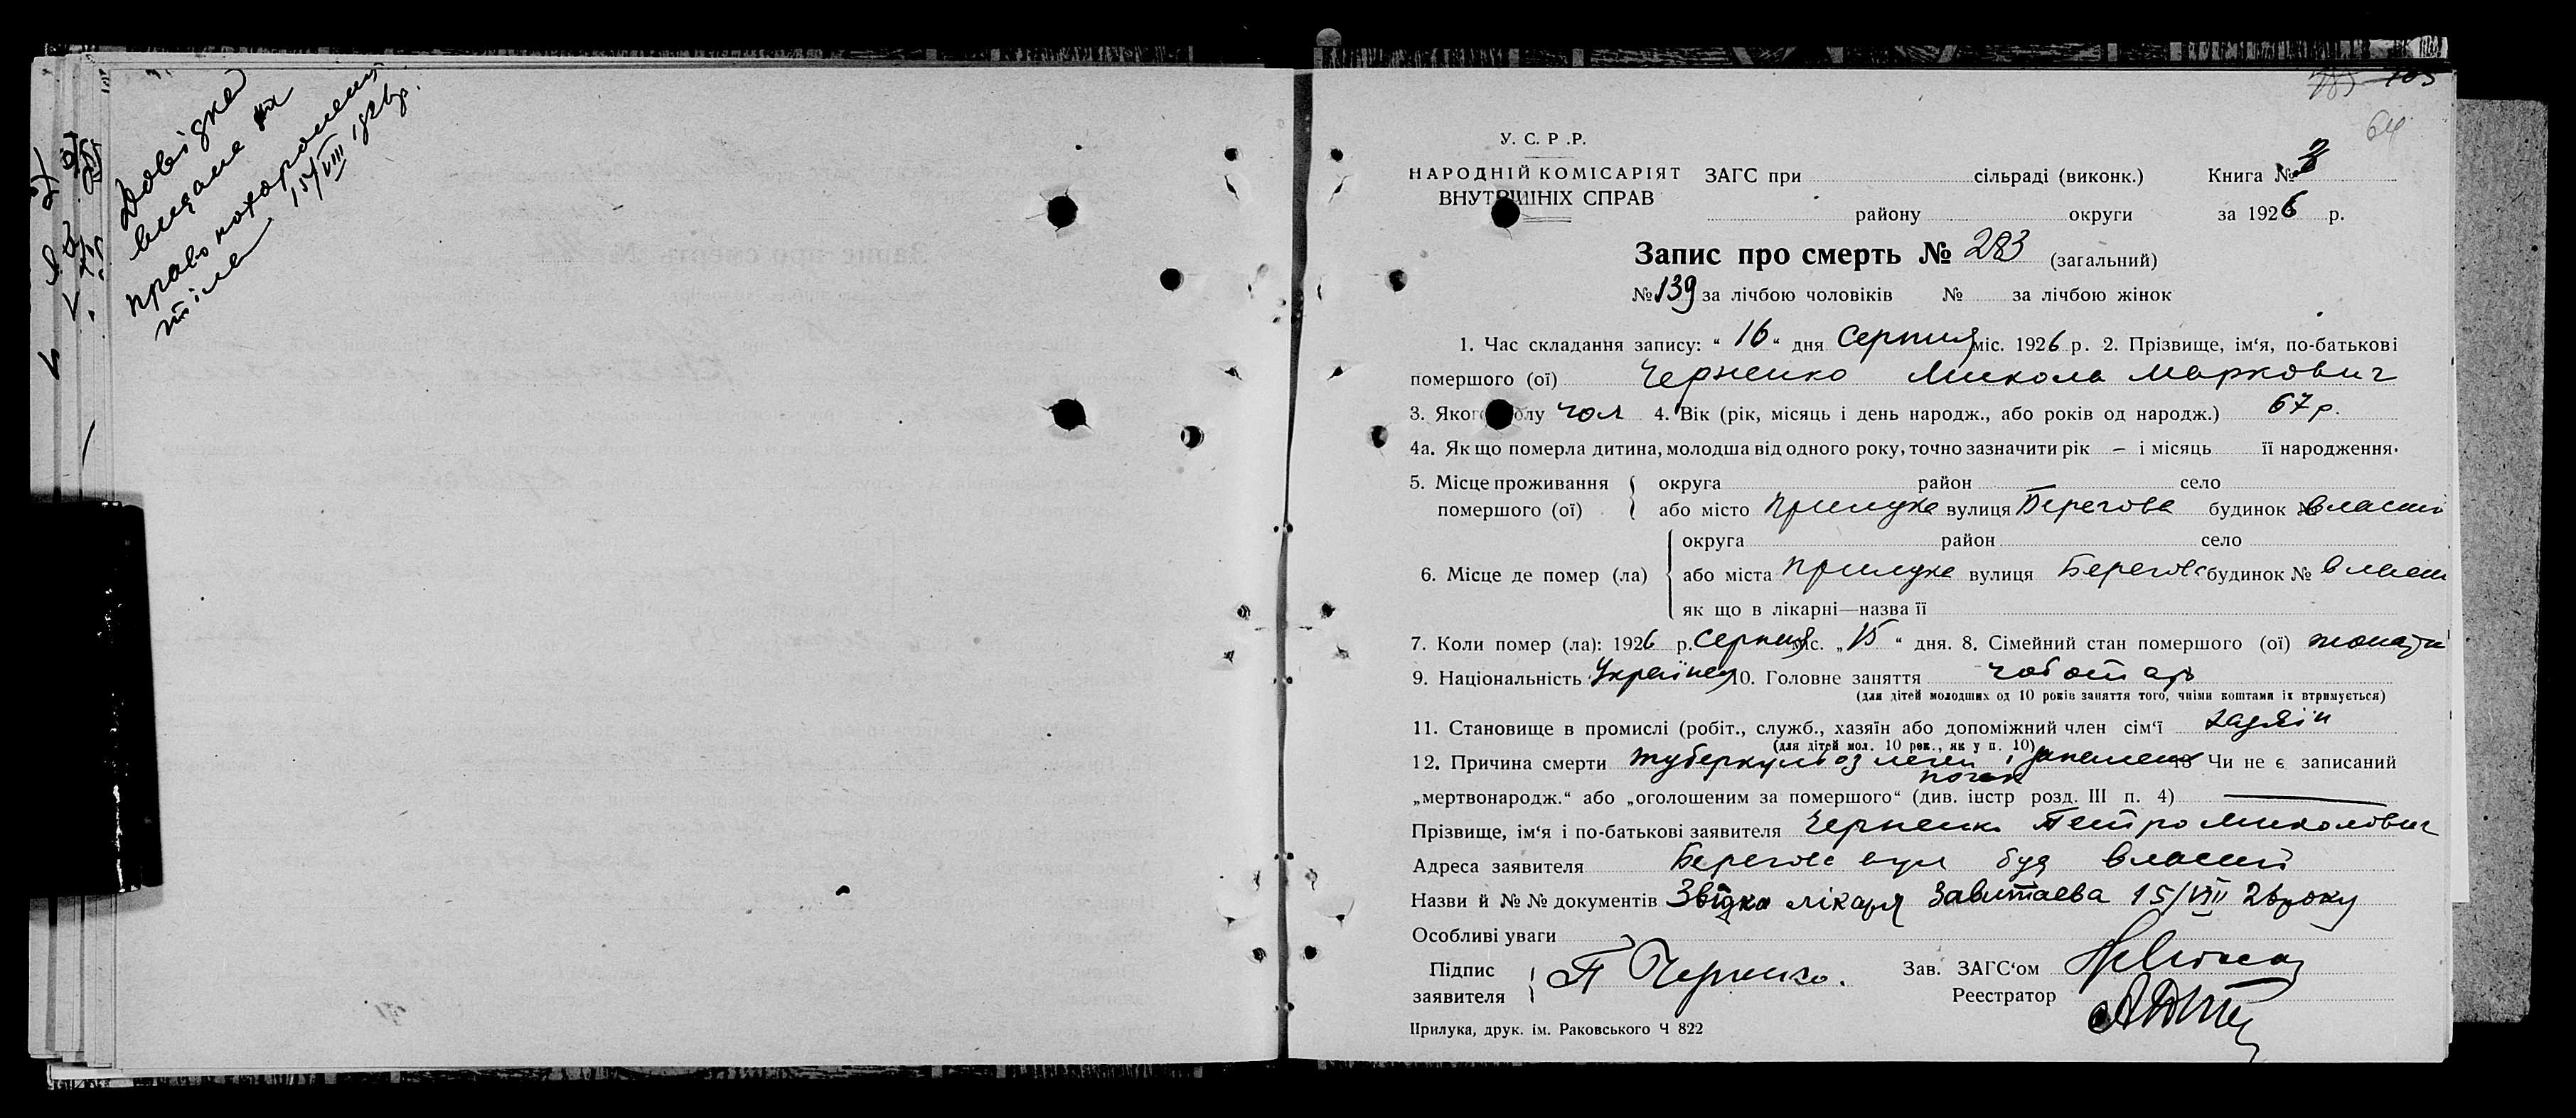 Довідка
видана на
право похоронення
тіла 15/VIII 1926р.
105
64
У. С. Р. Р.
НАРОДНІЙ КОМІСАРІЯТ
ВНУТРІШНІХ СПРАВ
ЗАГС при сільраді (виконк.) Книга № 3
району округи за 1926 р.
Запис про смерть № 283 (загальний)
№ 139 за лічбою чоловіків № за лічбою жінок
1. Час складання запису: “ 16 “ дня Серпня міс. 1926 р. 2. Прізвище, ім‘я, по-батькові
помершого (ої) Черненко Микола Маркович
3. Якого полу чол 4. Вік (рік, місяць і день народж., або років од народж.) 67 р.
4а. Як що померла дитина, молодша від одного року, точно зазначити рік — і місяць її народження.
5. Місце проживання помершого (ої) округа район село
або місто Прилука вулиця Берегова будинок № власний
6. Місце де помер (ла) округа район село
або міста Прилука вулиця Берегова будинок № власн
як що в лікарні—назва її
7. Коли помер (ла): 1926 р. Серпня міс. „ 15 “ дня. 8. Сімейний стан помершого (ої) жонати
9. Національність Українец 10. Головне заняття чоботарь
(для дітей молодших од 10 років заняття того, чиїми коштами їх втримується)
11. Становище в промислі (робіт., служб., хазяїн або допоміжний член сім‘ї хазяїн
(для дітей мол. 10 рок., як у п. 10)
12. Причина смерти туберкульоз леген і запалення 13 Чи не є записаний
нирок
„мертвонародж.“ або „оголошеним за помершого“ (див. інстр розд. III п. 4) —
Прізвище, ім‘я і по-батькові заявителя Черненко Петро Миколович
Адреса заявителя Берегова вул буд власний
Назви й № № документів Звідка лікаря Завитаева 15/VIII 26 року
Особливі уваги
Підпис заявителя П Черненко.
Зав. ЗАГС‘ом
Реестратор
Прилука, друк. ім. Раковського Ч 822